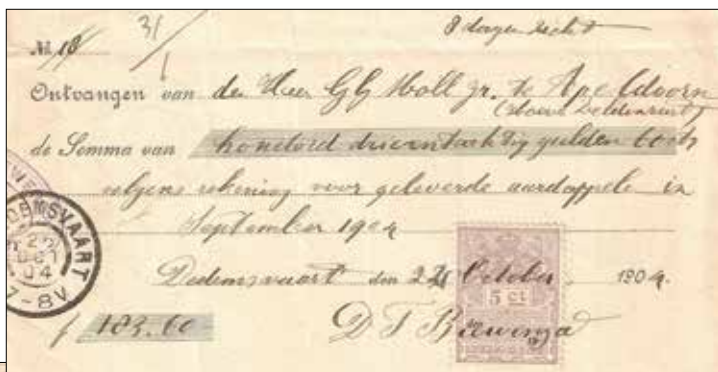 31/
8 dagen zicht
No. 18
Ontvangen van den Heer GG Moll jr. te Apeldoorn
de Somma van honderd drieentachtig gulden 60 cts
volgens rekening voor geleverde aardappele in
September 1904
Dedemsvaart den 22 October 1904.
5 ct
f 183.60
D T Biewenga
DEMSVAART
22 OCT
04
7-8V